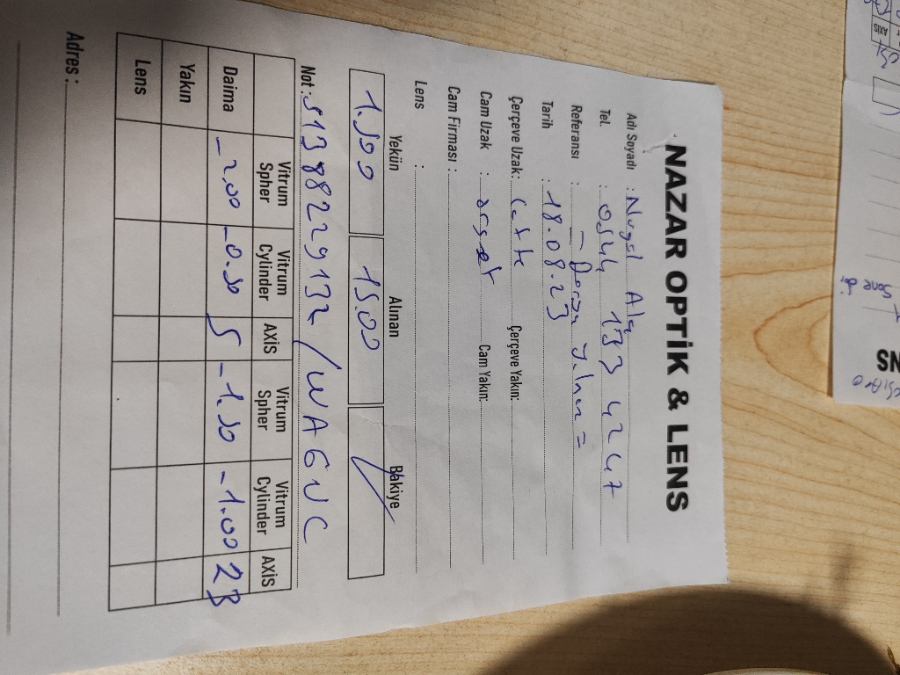 NAZAR OPTİK & LENS
Adı Soyadı : Nurgül
Tel. : 0544 193 4247
Referansı : =
Tarih : 18.08.23
Çerçeve Uzak: Çerçeve Yakın:
Cam Uzak : Cam Yakın:
Cam Firması :
Lens :
Yekün Alınan Bakiye
1.500 1500
Not: 5138829132 /
Vitrum Spher Vitrum Cylinder AXİS Vitrum Spher Vitrum Cylinder AXİS
Daima -2.00 -0.50 5 -1.50 -1.00 23
Yakın
Lens
Adres :
AXIS
NS